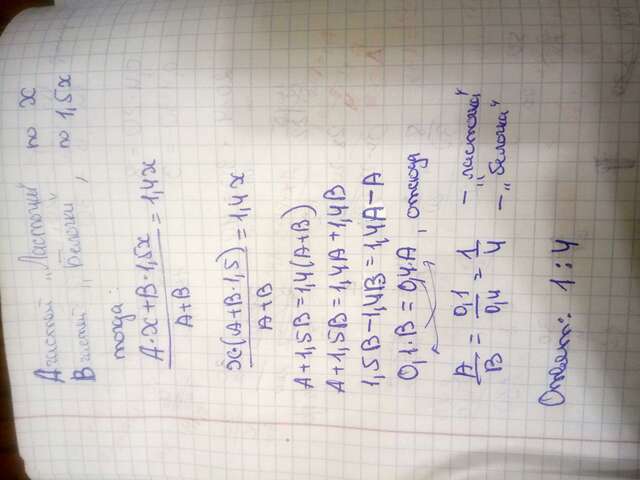 A частей „Ласточки" по x
B частей „Белочки", по 1,5x
тогда:
A·x+B·1,5x
A+B
=1,4x
x·(A+B·1,5)
A+B
=1,4x
A+1,5B=1,4(A+B)
A+1,5B=1,4A+1,4B
1,5B-1,4B=1,4A-A
0,1·B=0,4·A, отсюда
A/B = 0,1/0,4 = 1/4 - „ласточка" - „белочка"
Ответ: 1:4